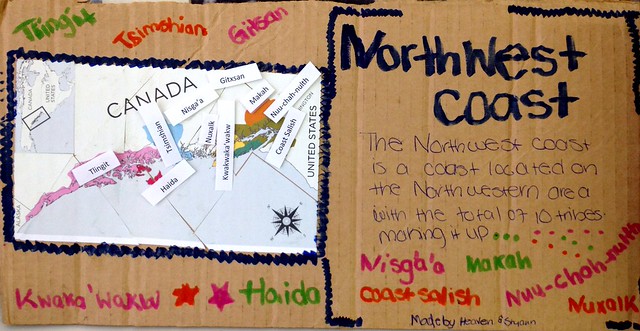 Tlingit
Tsimshian
Gitsan
NorthWest
Coast
CANADA
Gitxsan
Nisga'a
Makah
Nuu-chah-nulth
Tsimshian
Nuxalk
Kwakwaka'wakw
Coast Salish
Tlingit
Haida
UNITED STATES
ALASKA
CANADA
UNITED STATES
The Northwest coast
is a coast located on
the Northwestern area
with the total of 10 tribes
making it up
Nisga'a
Makah
Nuu-chah-nulth
Coast salish
Nuxalk
Kwaka'wakw
Haida
Made by Heaven &